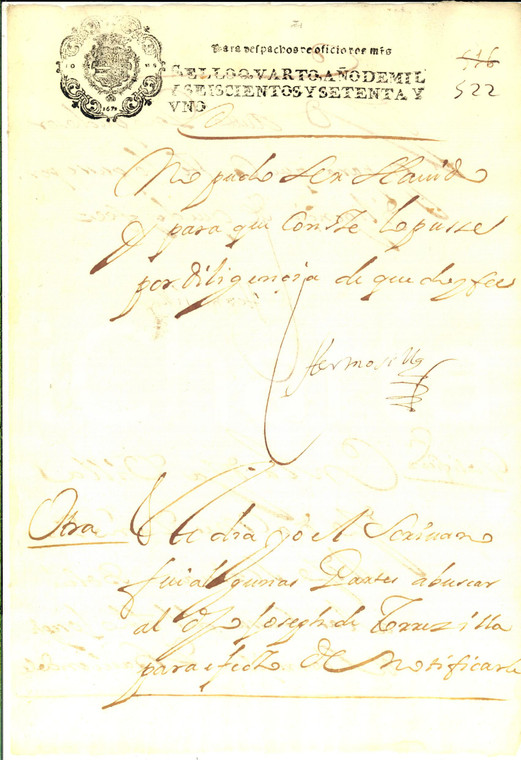 Para despachos de oficio dos mrs
SELLO QVARTO AÑO DE MIL
Y SEISCIENTOS Y SETENTA Y
VNO
516
522
1671
No pudo ser hauido
y para que Conste lo puse
por diligençia de que doy fee
Hermosilla
Otra
este dia yo el Scriuano
fui a algunas Partes a buscar
al d Joseph de
para efeto de Notificarle